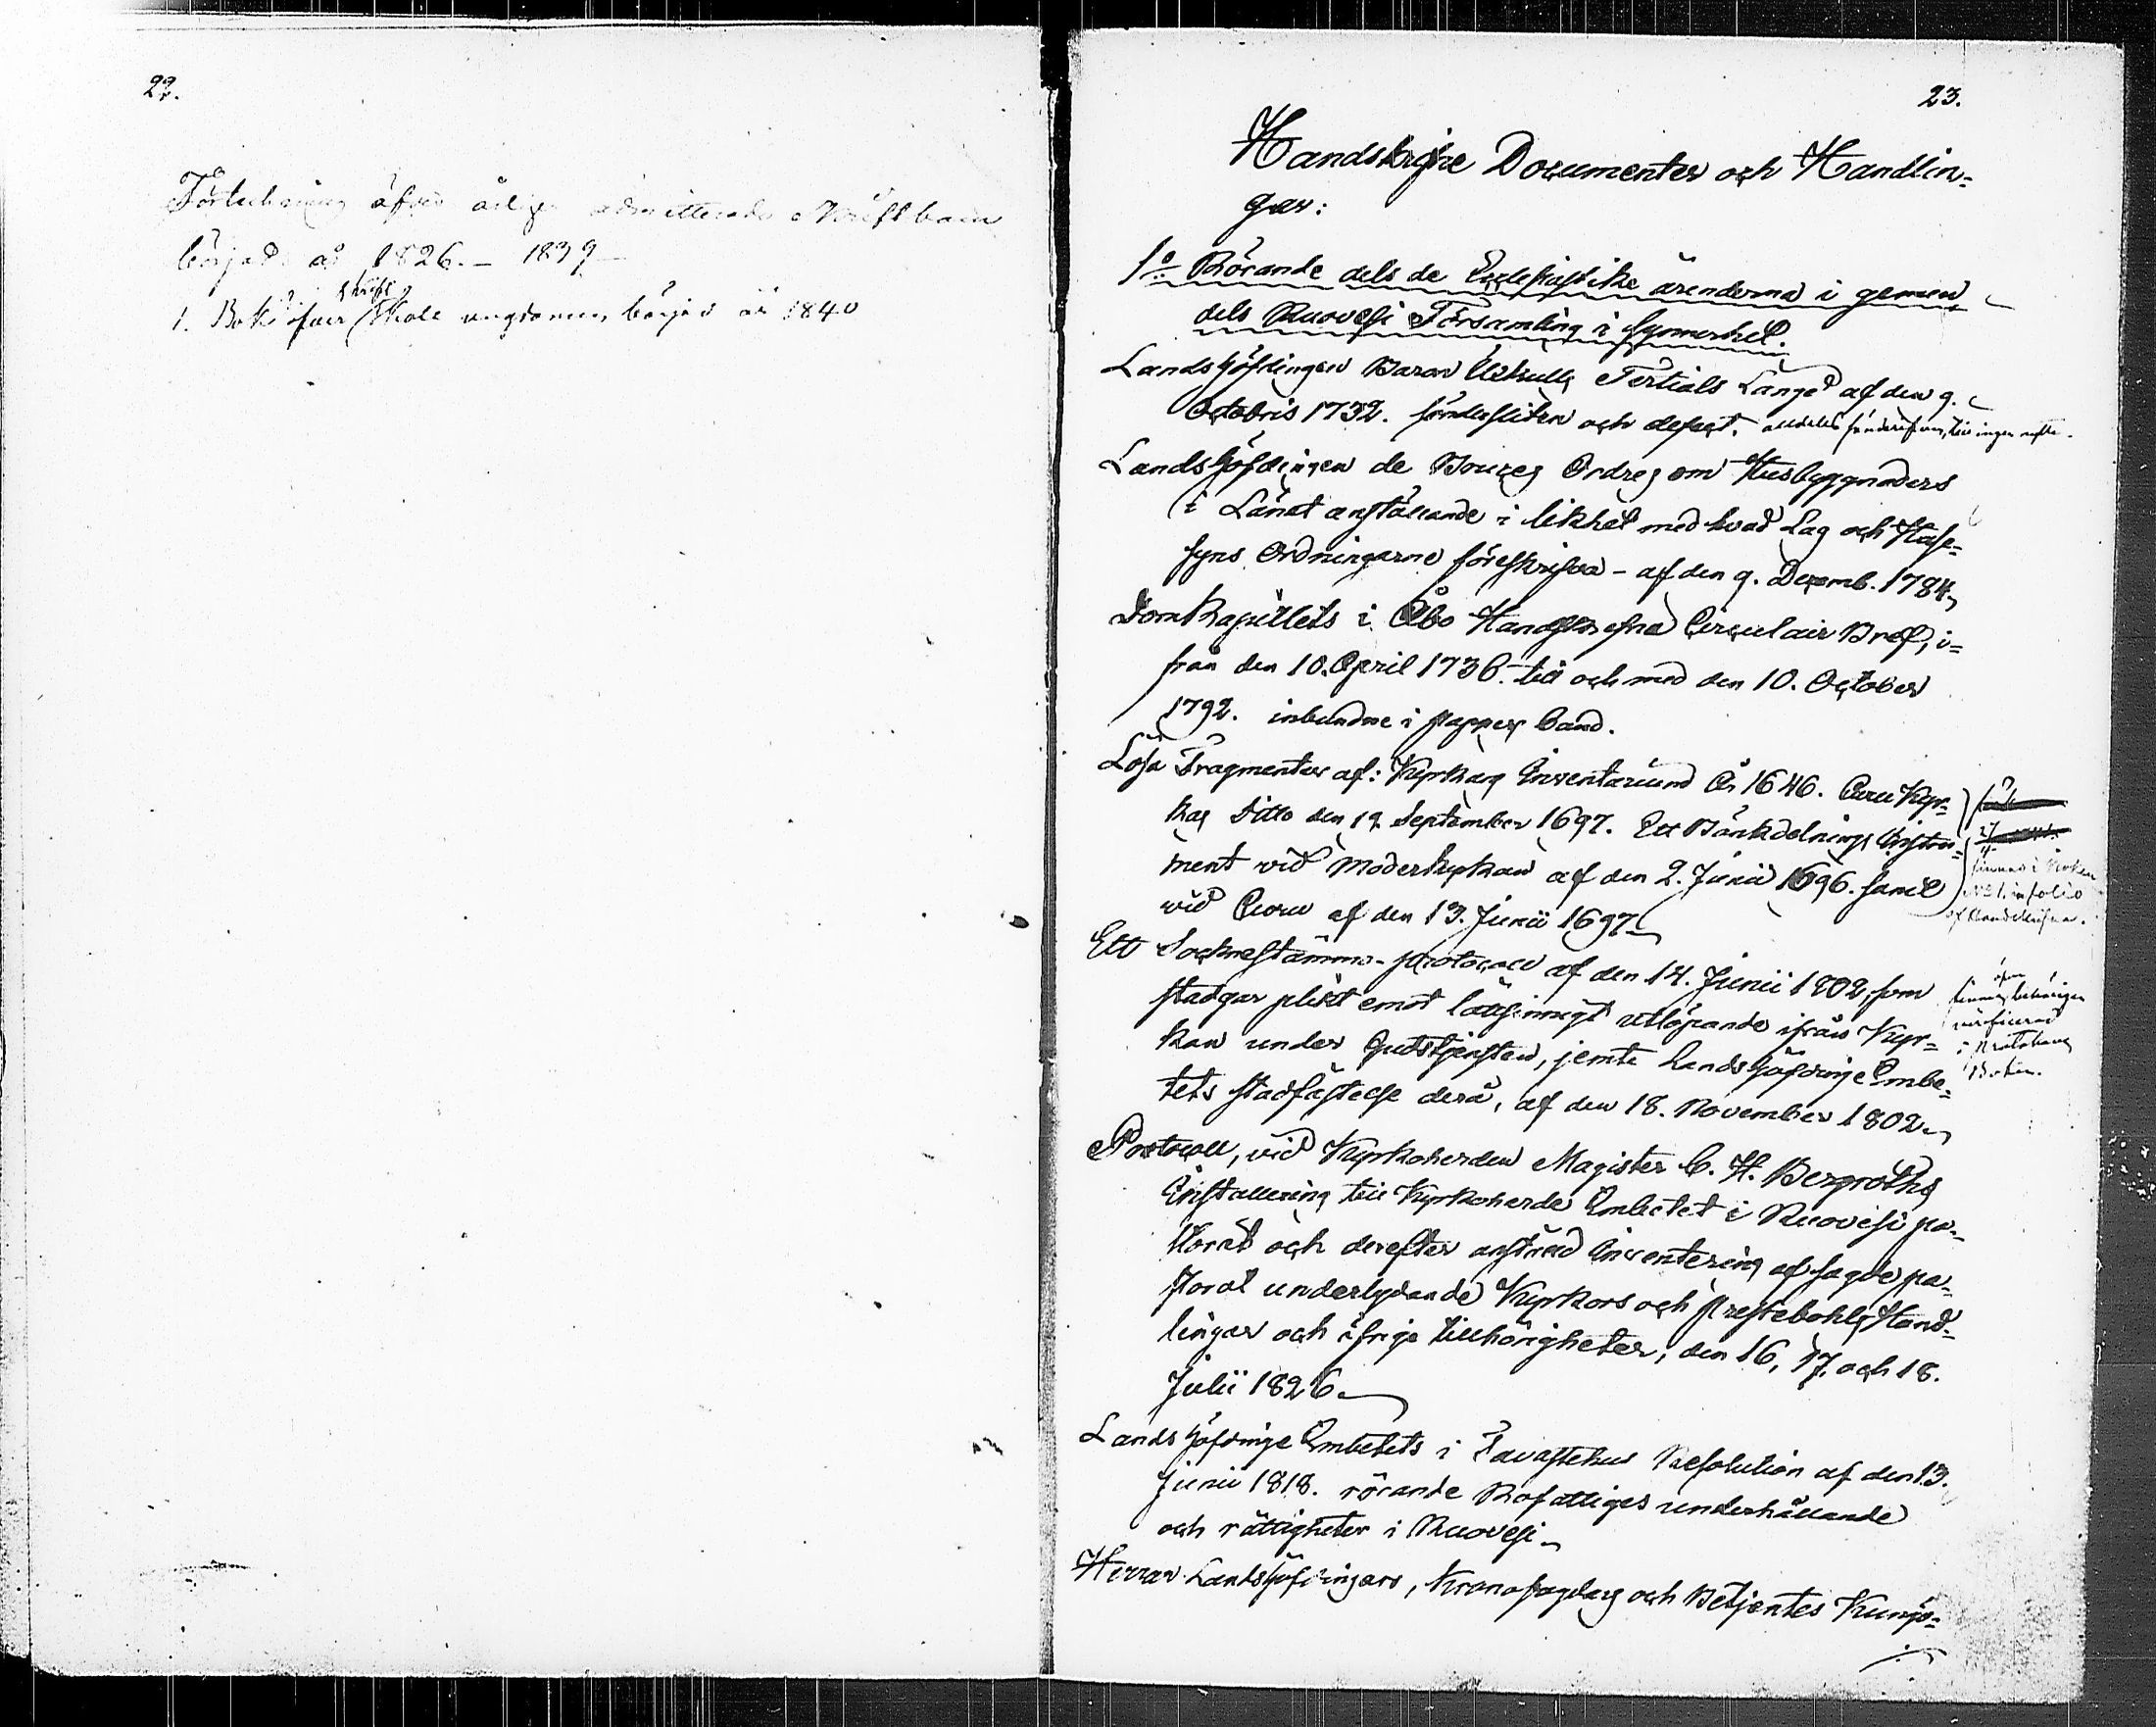 22.
Förteckning öfver årligen admitterade Skriftbarn
började år 1826. – 1839
skrift
1. Bok öfver Skole ungdomen börjad år 1840
23.
Handskrifne Documenter och Handlin=
gar:
1o Rörande dels de Ecclesiastike ärenderna i gemen,
dels Ruovesi Församling i synnerhet.
Landshöfdingen Baron Üxkulls Tertials Längd af den 9.
Octobris 1732. söndersliten och defect. alldeles sönderrifven, till ingen nytta.
Landshöfdingen de Bouçes Ordres om Husbyggnaders
i Länet anställande i likhet med hvad Lag och Huse=
syns Ordningarne föreskrifva – af den 9. Decemb. 1784.
Domkapitlets i Åbo Handskrefna Circulair Bref, i=
från den 10. April 1736. till och med den 10. October
1792. inbundne i pappers band.
Lösa Fragmenter af: Kyrkans Inventarium År 1646. Curu Kyr=
kas Ditto den 12 September 1697. Ett Bänkdelnings Instru=
ment vid Moderkyrkan af den 2. Junii 1696. samt
vid Curu af den 13. Junii 1697.
finnas i Boken
No 1. in folio
af Handskrifna.
Ett Sockenstämmo-protocoll af den 14. Junii 1802, som
stadgar plikt emot lättsinnigt utlöpande ifrån Kyr=
kan under Gudstjensten, jemte Landshöfdinge Embe=
tets stadfästelse derå, af den 18. November 1802.
äfven
finnes behörigen
verificerad
i Protokolls
Boken.
Protocoll, vid Kyrkoherden Magister C. H. Bergroths
Installering till Kyrkoherde Embetet i Ruovesi pa=
storat och derefter anstäld Inventering af sagde pa=
storat underlydande Kyrkors och prestebohls Hand=
lingar och öfrige tillhörigheter, den 16, 17, och 18.
Julii 1826.
Landshöfdinge Embetets i Tavastehus Resolution af den 13.
Junii 1818. rörande Rofattiges underhållande
och rättigheter i Ruovesi.
Herrar Landshöfdingars, Kronofogdars och Betjentes Kungö=